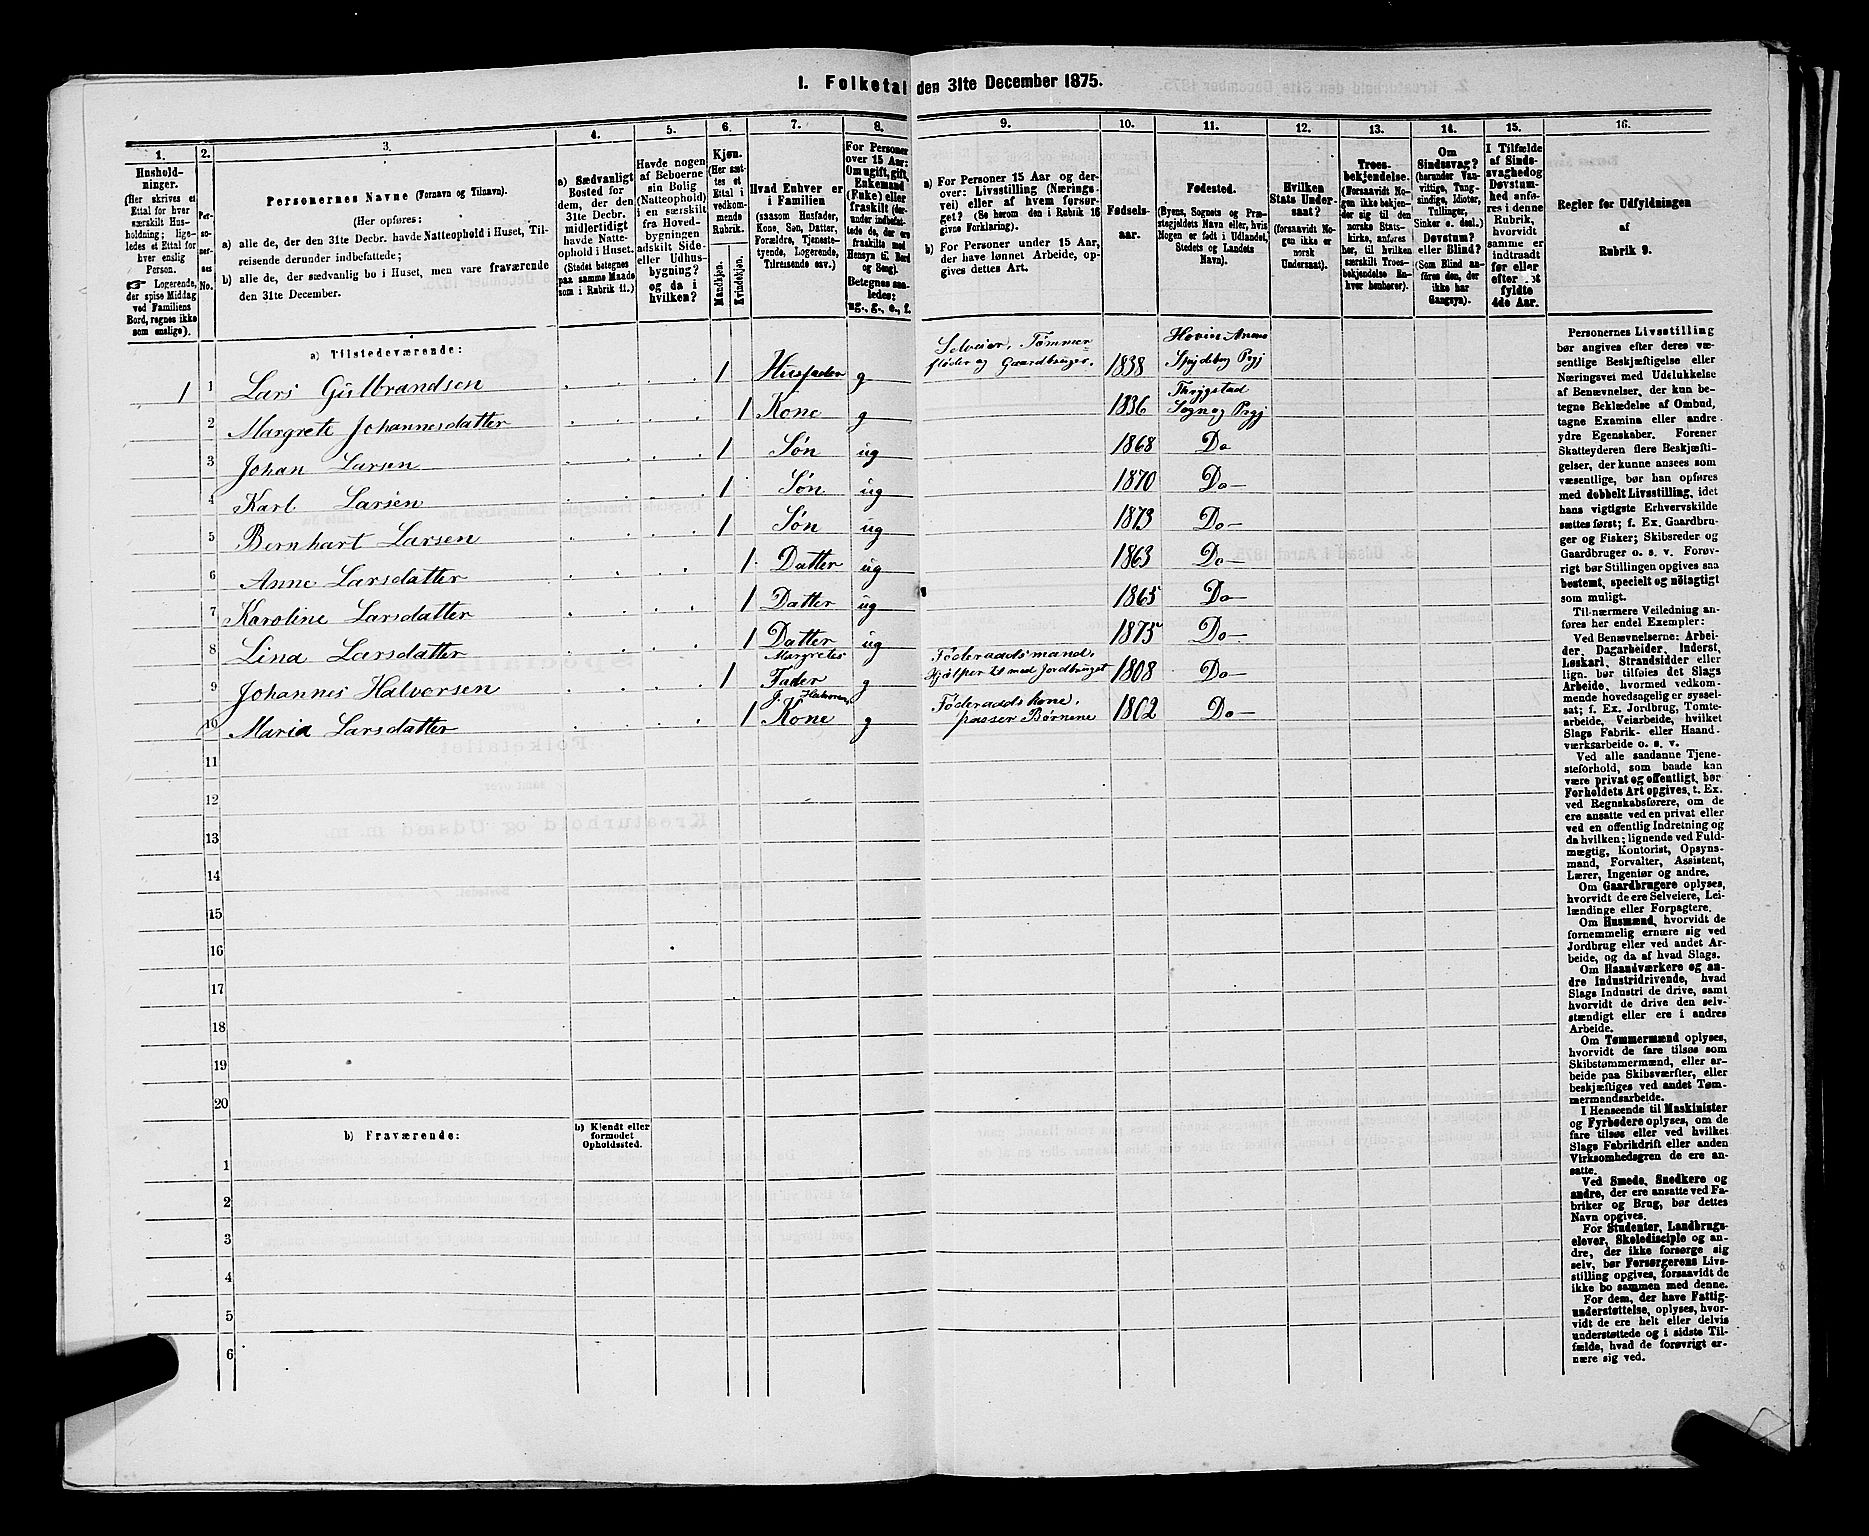 1. Folketal den 31te December 1875.
1. 2. 3. 4. 5. 6. 7. 8. 9. 10. 11. 12. 13. 14. 15. 16.
Hushold-
ninger.
(Her skrives et
Ettal for hver
særskilt Hus-
holdning; lige-
ledes et Ettal for
hver enslig
Person.
☞ Logerende,
der spise Middag
ved Familiens
Bord, regnes ikke
som enslige).
Per-
soner-
nes
No.
Personernes Navne (Fornavn og Tilnavn).
(Her opføres:
a) alle de, der den 31te Decbr. havde Natteophold i Huset, Til-
reisende derunder indbefattede;
b) alle de, der sædvanlig bo i Huset, men vare fraværende
den 31te December.
a) Sædvanligt
Bosted for
dem, der den
31te Decbr.
midlertidigt
havde Natte-
ophold i Huset.
(Stedet betegnes
paa samme Maade
som i Rubrik 11.)
Havde nogen
af Beboerne
sin Bolig
(Natteophold)
i en særskilt
fra Hoved-
bygningen
adskilt Side-
eller Udhus-
bygning?
og da i
hvilken?
Kjøn.
(Her sæt-
tes et
Ettal i
vedkom-
mende
Rubrik.
Mandkjøn.
Kvindekjøn.
Hvad Enhver er
i Familien
(saasom Husfader,
Kone, Søn, Datter,
Forældre, Tjeneste-
tyende, Logerende,
Tilreisende osv.)
For Personer
over 15 Aar:
Om ugift, gift,
Enkemand
(Enke) eller
fraskilt (der-
under indbefat-
tede de, der ere
fraskilte med
Hensyn til Bord
og Seng).
Betegnes saa-
ledes:
ug., g., e., f.
a) For Personer 15 Aar og der-
over: Livsstilling (Nærings-
vei) eller af hvem forsør-
get? (Se herom den i Rubrik 16
givne Forklaring).
b) For Personer under 15 Aar,
der have lønnet Arbeide, op-
gives dettes Art.
Fødsels-
aar.
Fødested.
(Byens, Sognets og Præ-
stegjeldets Navn eller, hvis
Nogen er født i Udlandet,
Stedets og Landets
Navn).
Hvilken
Stats Under-
saat?
(forsaavidt No-
gen ikke er
norsk
Undersaat).
Troes-
bekjendelse.
(Forsaavidt No-
gen ikke bekjen-
der sig til den
norske Stats-
kirke, anføres
her, til hvilken
særskilt Troes-
bekjendelse En-
hver henhører).
Om
Sindssvag?
(herunder Van-
vittige, Tung-
sindige, Idioter,
Tullinger,
Sinker o. desl.)
Døvstum?
eller Blind?
(Som Blind an-
føres den, der
ikke har
Gangsyn).
I Tilfælde
af Sinds-
svaghed og
Døvstum-
hed anfø-
res i denne
Rubrik,
hvorvidt
samme er
indtraadt
før eller
efter det
fyldte
4de Aar.
Regler for Udfyldningen
af
Rubrik 9.
a) Tilstedeværende:
1 1 Lars Gulbrandsen 1 Husfader g Selveier, Tømmer-
fløder og Gaardbruger. 1838 Spydeberg Prgj
2 Margrete Johannesdatter 1 Kone g 1836 Thrygstad
Sogn og Prgj
3 Johan Larsen 1 Søn ug 1868 Do
4 Karl Larsen 1 Søn ug 1870 Do
5 Bernhart Larsen 1 Søn ug 1873 Do
6 Anne Larsdatter 1 Datter ug 1863 Do
7 Karoline Larsdatter 1 Datter ug 1865 Do
8 Lina Larsdatter 1 Datter ug 1875 Do
9 Johannes Halvorsen 1 Margretes
Fader g Føderaadsmand,
Hjælper til med Jordbruget 1808 Do
10 Maria Larsdatter 1 J. Halvorsens
Kone g Føderaadskone,
passer Børnene 1802 Do
11
12
13
14
15
16
17
18
19
20
b) Fraværende:
b) Kjendt eller
formodet
Opholdssted.
1
2
3
4
5
6
Personernes Livsstilling
bør angives efter deres væ-
sentlige Beskjæftigelse eller
Næringsvei med Udelukkelse
af Benævnelser, der kun be-
tegne Beklædelse af Ombud,
tagne Examina eller andre
ydre Egenskaber. Forener
Skatteyderen flere Beskjæfti-
gelser, der kunne ansees som
væsentlige, bør han opføres
med dobbelt Livsstilling, idet
hans vigtigste Erhvervskilde
sættes først; f. Ex. Gaardbru-
ger og Fisker; Skibsreder og
Gaardbruger o. s. v. Forøv-
rigt bør Stillingen opgives saa
bestemt, specielt og nøiagtigt
som muligt.
Til nærmere Veiledning an-
føres her endel Exempler:
Ved Benævnelserne: Arbei-
der, Dagarbeider, Inderst,
Løskarl, Strandsidder eller
lign. bør tilføies det Slags
Arbeide, hvormed vedkom-
mende hovedsagelig er syssel-
sat; f. Ex. Jordbrug, Tomte-
arbeide, Veiarbeide, hvilket
Slags Fabrik- eller Haand-
værksarbeide o. s. v.
Ved alle saadanne Tjene-
steforhold, som baade kan
være privat og offentligt, bør
Forholdets Art opgives, t. Ex.
ved Regnskabsførere, om de
ere ansatte ved en privat eller
ved en offentlig Indretning og
da hvilken; lignende ved Fuld-
mægtig, Kontorist, Opsyns-
mand, Forvalter, Assistent,
Lærer, Ingeniør og andre.
Om Gaardbrugere oplyses,
hvorvidt de ere Selveiere, Lei-
lændinge eller Forpagtere.
Om Husmænd, hvorvidt de
fornemmelig ernære sig ved
Jordbrug eller ved andet Ar-
beide, og da af hvad Slags.
Om Haandværkere og an-
dre Industridrivende, hvad
Slags Industri de drive, samt
hvorvidt de drive den selv-
stændigt eller ere i andres
Arbeide.
Om Tømmermænd oplyses,
hvorvidt de fare tilsøs som
Skibstømmermænd, eller ar-
beide paa Skibsværfter, eller
beskjæftiges ved andet Tøm-
mermandsarbeide.
I Henseende til Maskinister
og Fyrbødere oplyses, om de
fare tilsøs eller ved hvilket
Slags Fabrikdrift eller anden
Virksomhedsgren de ere an-
satte.
Ved Smede, Snedkere og
andre, der ere ansatte ved Fa-
briker og Brug, bør dettes
Navn opgives.
For Studenter, Landbrugs-
elever, Skoledisciple og an-
dre, der ikke forsørge sig
selv, bør Forsørgerens Livs-
stilling opgives, forsaavidt de
ikke bo sammen med denne.
For dem, der have Fattig-
understøttelse, oplyses, hvor-
vidt de ere helt eller delvis
understøttede og i sidste Til-
fælde, hvad de forøvrigt er-
nære sig ved.